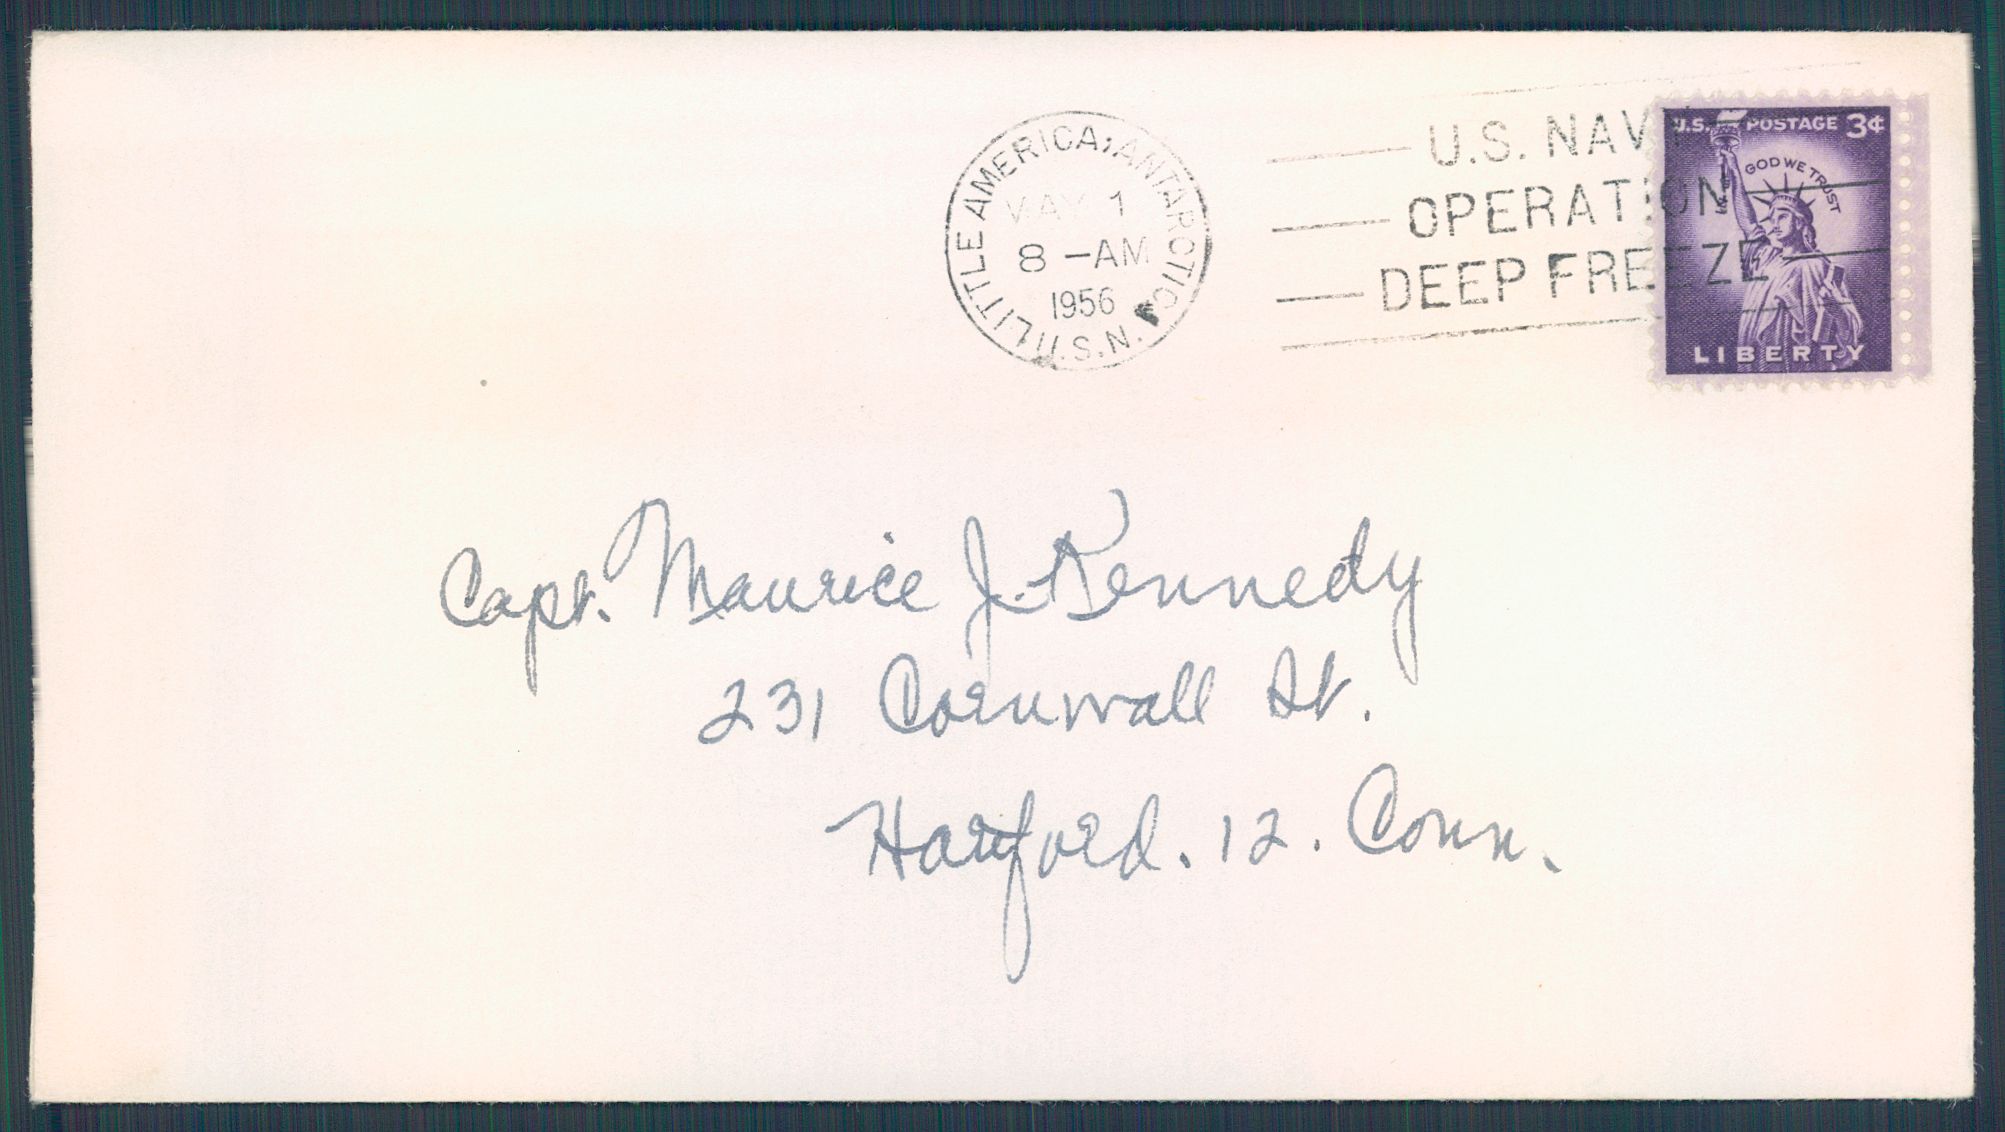 LITTLE AMERICA, ANTARCTICA
MAY 1
8 -AM
1956
U.S.N.
U.S. NAVY
OPERATION
DEEP FREEZE
U.S. POSTAGE 3¢
IN GOD WE TRUST
LIBERTY
Capt. Maurice J. Kennedy
231 Cornwall St.
Hartford. 12. Conn.